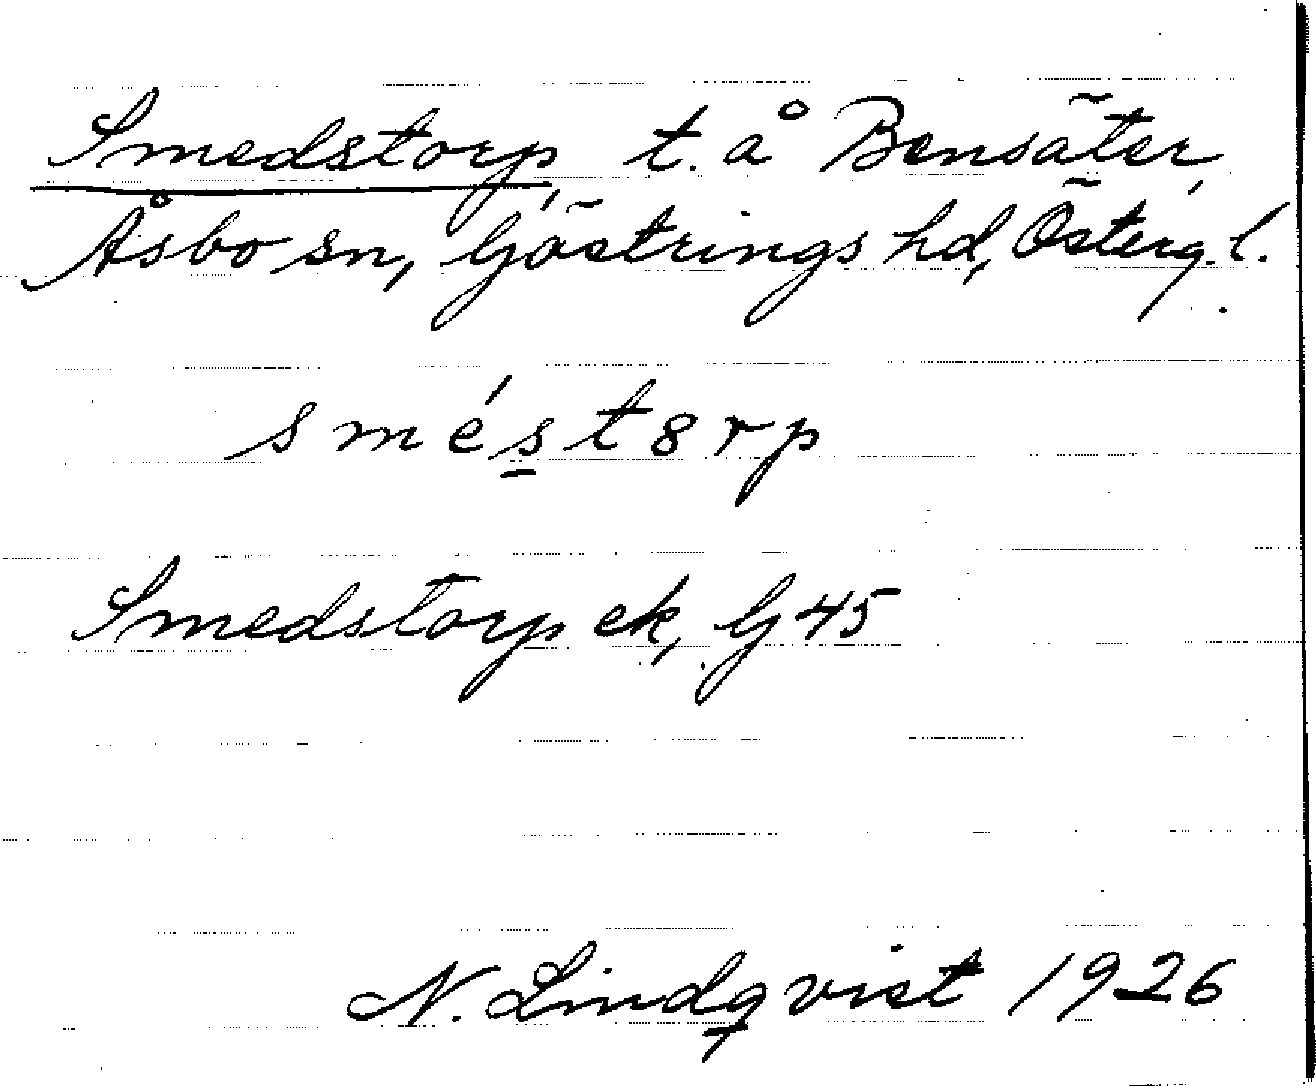 Smedstorp, t. å Bensäter,
Åsbo sn, Göstrings hd, Österg. l.
smést8rp
Smedstorp ek, G 45
N. Lindqvist 1926